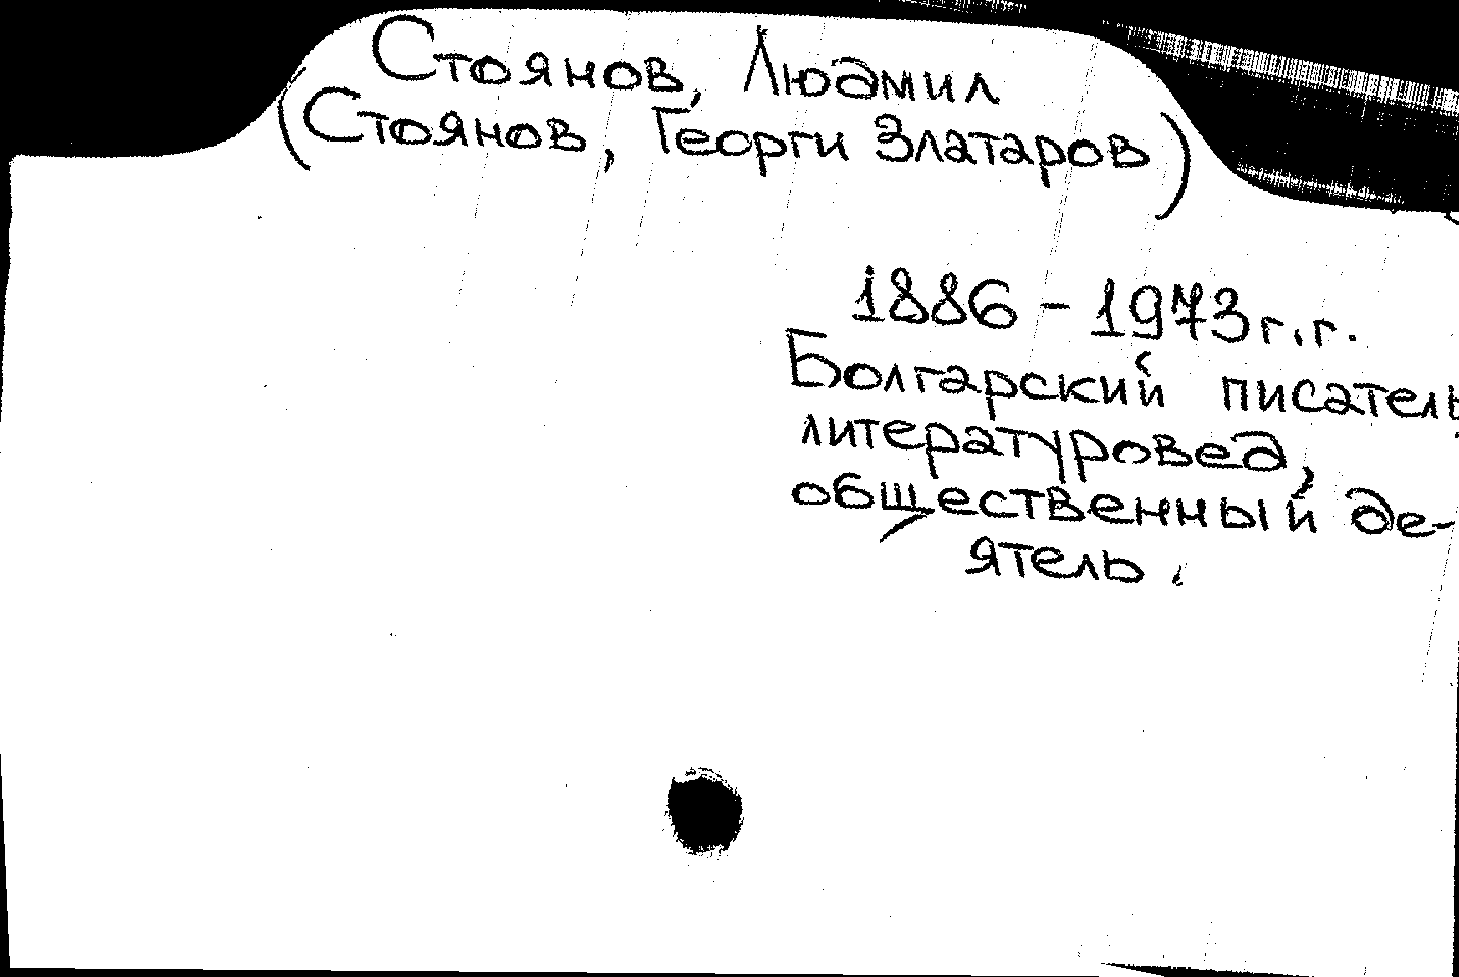 Стоянов, Людмил
(Стоянов, Георги Златаров)
1886 - 1973 г.г.
Болгарский писатель
литературовед,
общественный де-
ятель.